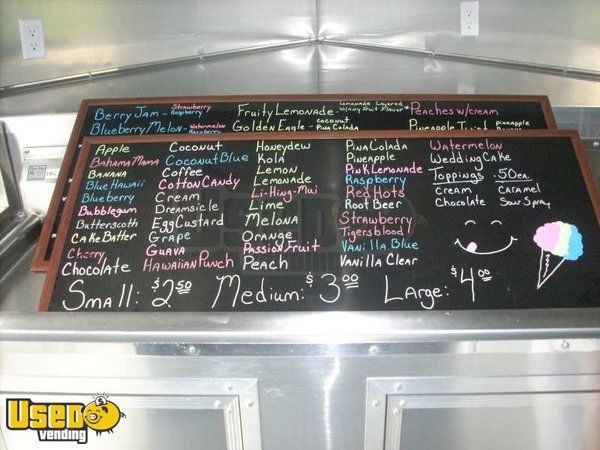 Berry Jam - Strawberry Raspberry
Blueberry Melon - Watermelon Raspberry
Fruity Lemonade - Lemonade Layered w/Any Fruit Flavor
Golden Eagle - Coconut Pina Colada
Peaches w/cream
Pineapple Twist Pineapple
Apple
Bahama Mama
Banana
Blue Hawaii
Blueberry
Bubblegum
Butterscoth
Cake Batter
Cherry
Chocolate
Coconut
Coconut Blue
Coffee
Cotton Candy
Cream
Dreamsicle
Egg Custard
Grape
Guava
Hawaiian Punch
Honeydew
Kola
Lemon
Lemonade
Li-Hing-Mui
Lime
Melona
Orange
Passion Fruit
Peach
Pina Colada
Pineapple
Pink Lemonade
Raspberry
Red Hots
Root Beer
Strawberry
Tigersblood
Vanilla Blue
Vanilla Clear
Watermelon
Wedding Cake
Toppings .50ea.
Cream Caramel
Chocolate Sour Spray
Small: $2.50 Medium: $3.00 Large: $4.00
USED vending